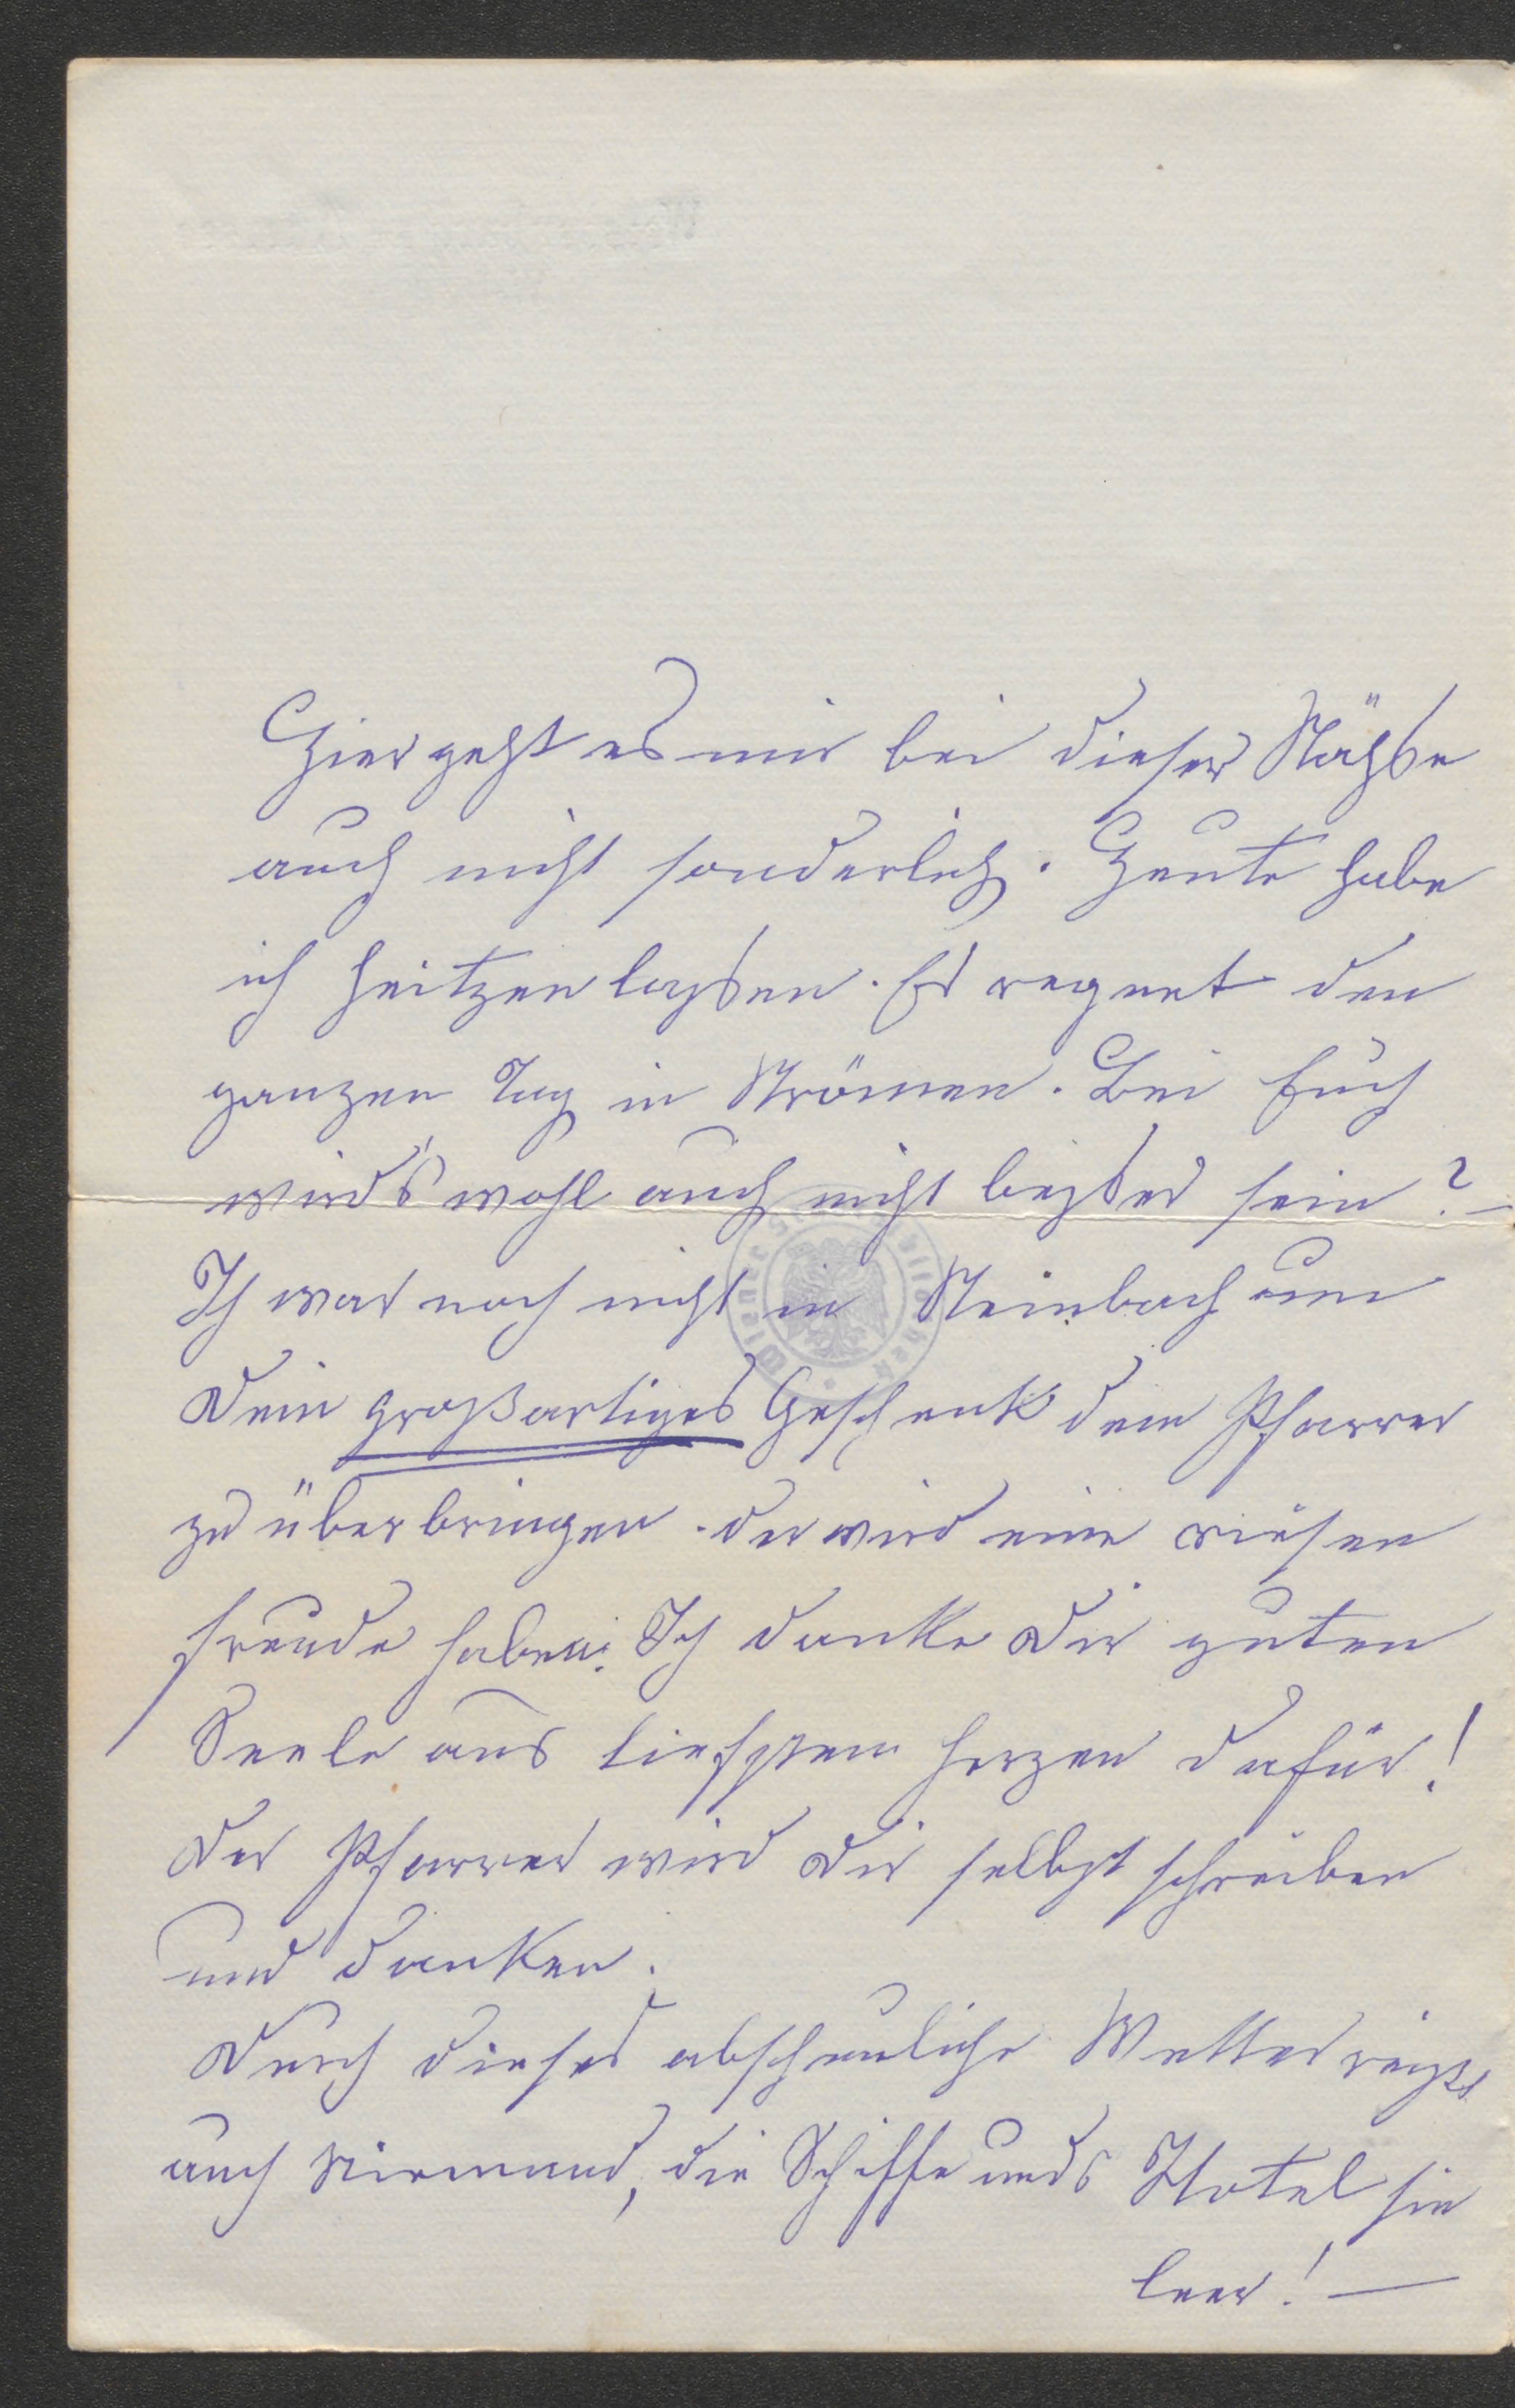 Hier geht es mir bei dieser Näße
auch nicht sonderlich. Heute habe
ich heitzen laßen. Es regnet den
ganzen Tag in Strömen. Bei Euch
wird's wohl auch nicht beßer sein? –
Ich war noch nicht in Steinbach um
Dein großartiges Geschenk dem Pfarrer
zu überbringen. Der wird eine riesen
Freude haben. Ich danke Dir guten
Seele aus tiefstem Herzen dafür!
Der Pfarrer wird Dir selbst schreiben
und danken.
Durch dieses abscheuliche Wetter reist
auch Niemand, die Schiffe und's Hotel sin
leer! —
Wiener Stadtbibliothek